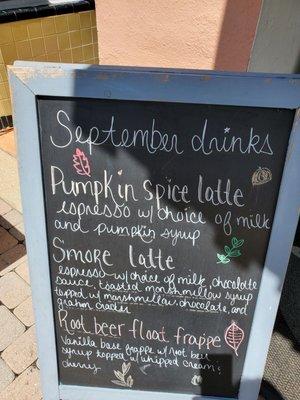 September drinks
Pumpkin Spice latte
espresso w/ choice of milk
and pumpkin syrup
Smore latte
espresso w/ choice of milk, chocolate
sauce, toasted marshmallow syrup
topped w/ marshmallow, chocolate, and
graham cracker
Root beer float frappe
Vanilla base frappe w/ root beer
syrup topped w/ whipped cream &
cherry